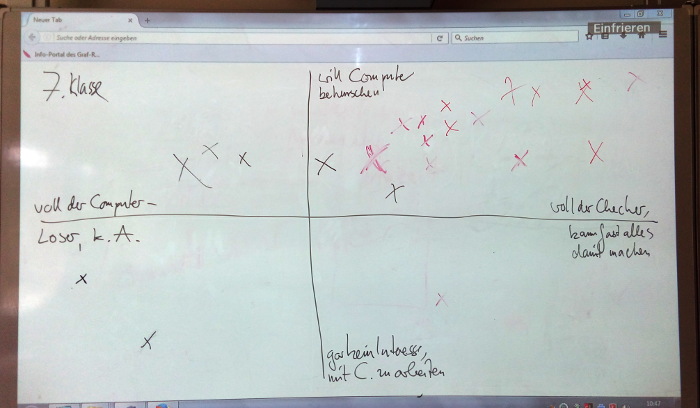 Neuer Tab
Einfrieren
Suche oder Adresse eingeben
Suchen
Info-Portal des Graf-R...
7. Klasse
will Computer
beherrschen
voll der Computer-
Loser, k. A.
voll der Checker,
kann fast alles
damit machen
gar kein Interesse,
mit C. zu arbeiten
10:47